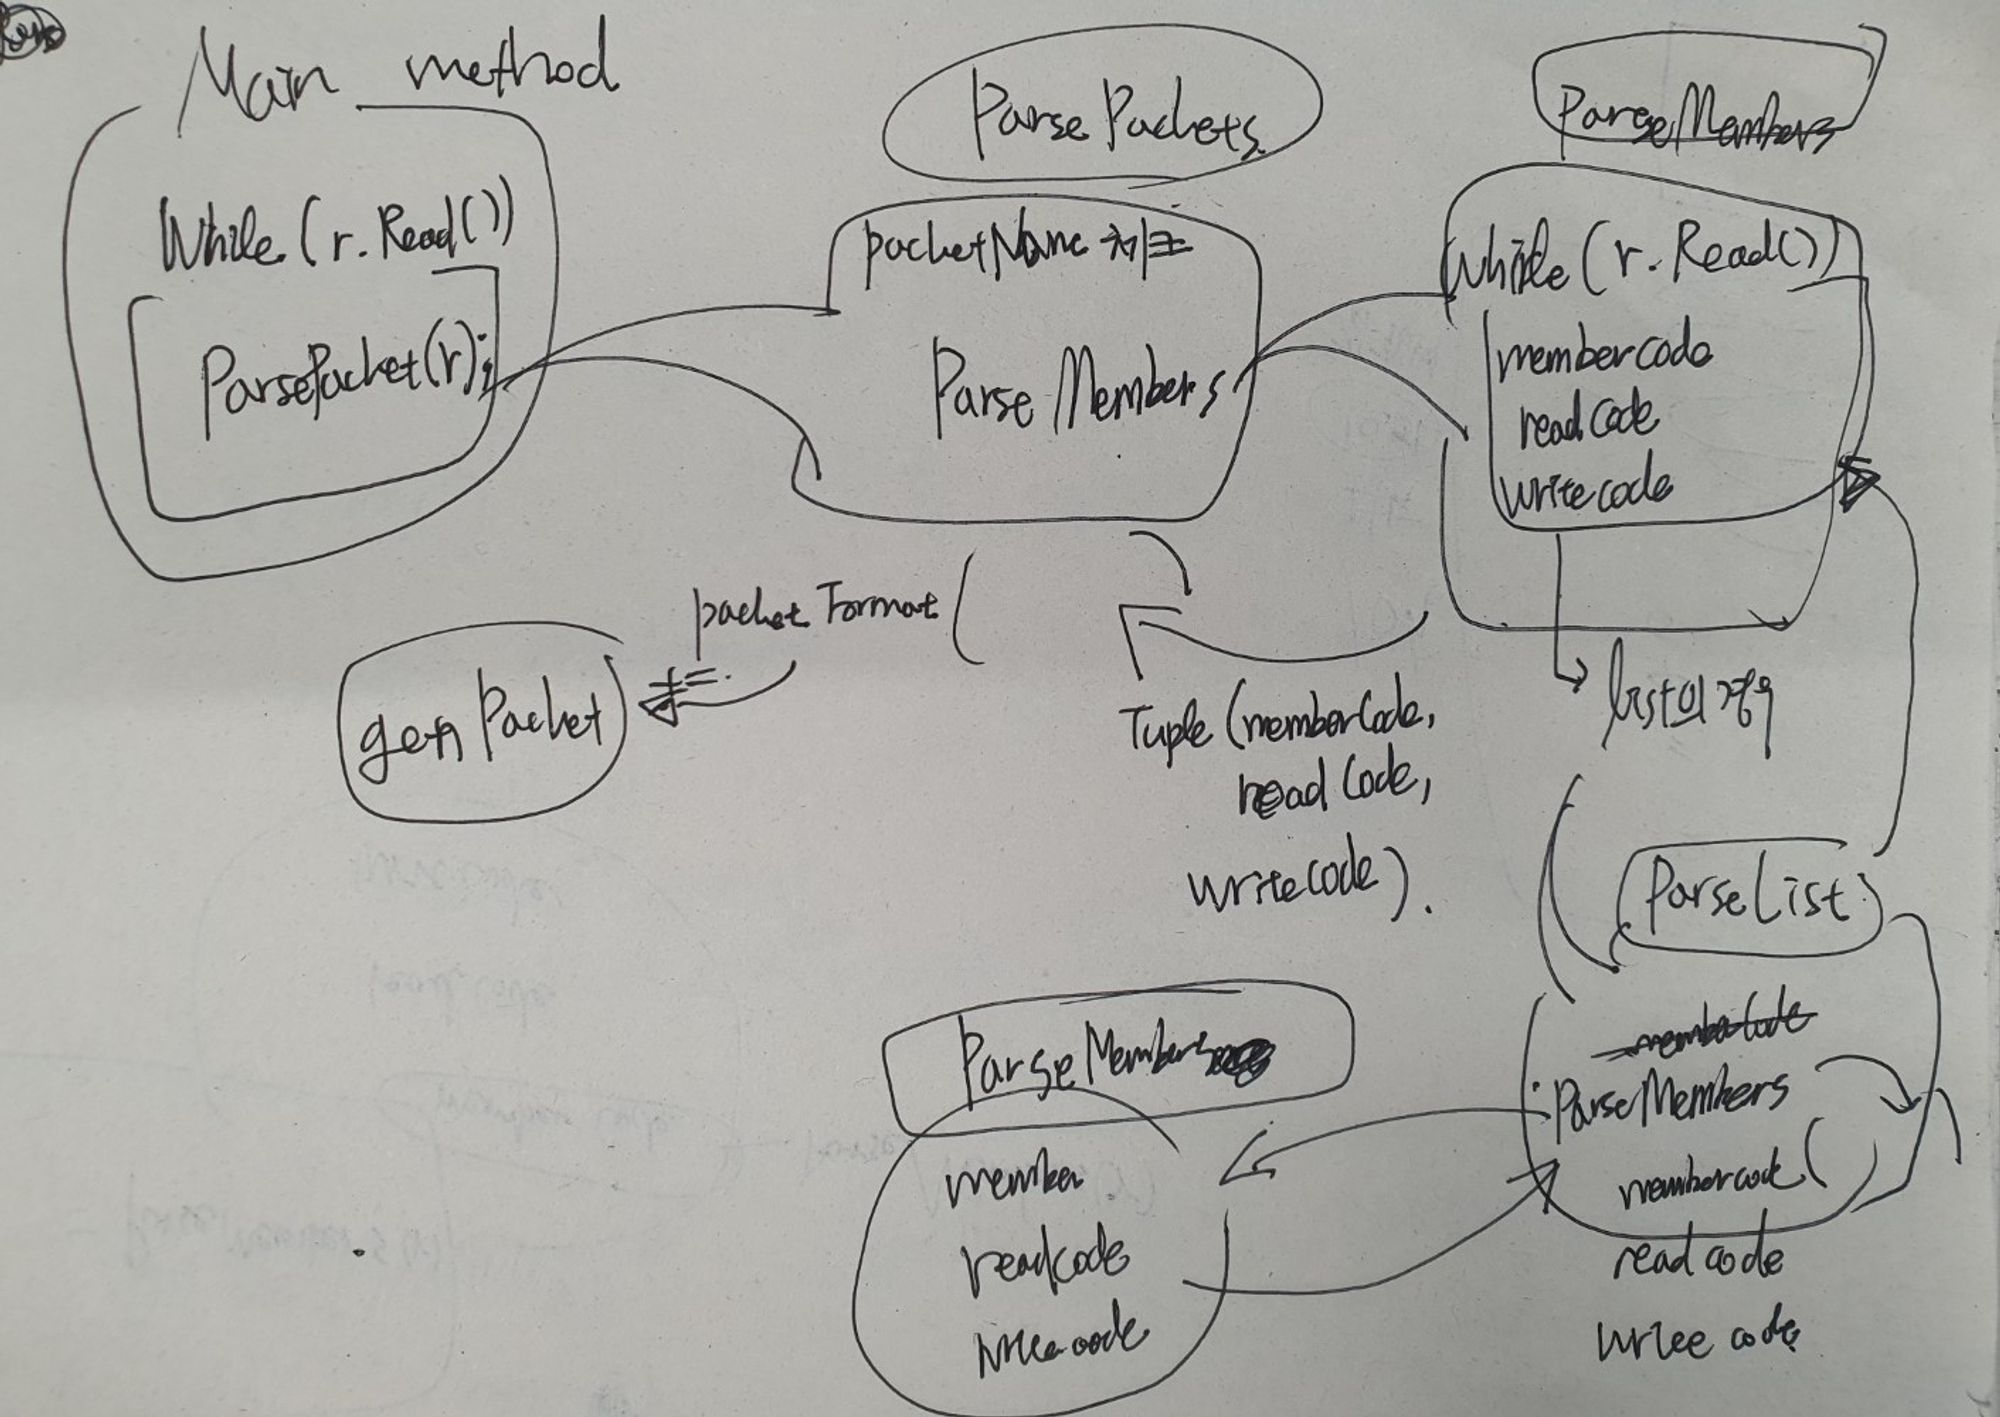 Main method
While (r.Read())
ParsePacket(r);
Parse Packets
packetName 체크
Parse Members
ParseMembers
While (r.Read())
membercode
readCode
writecode
list의 경우
packet Format (
+=
gen Packet
Tuple (memberCode,
read Code,
writecode).
ParseList
memberCode
ParseMembers
membercode (
read code
write code
ParseMembers
member
readcode
writecode